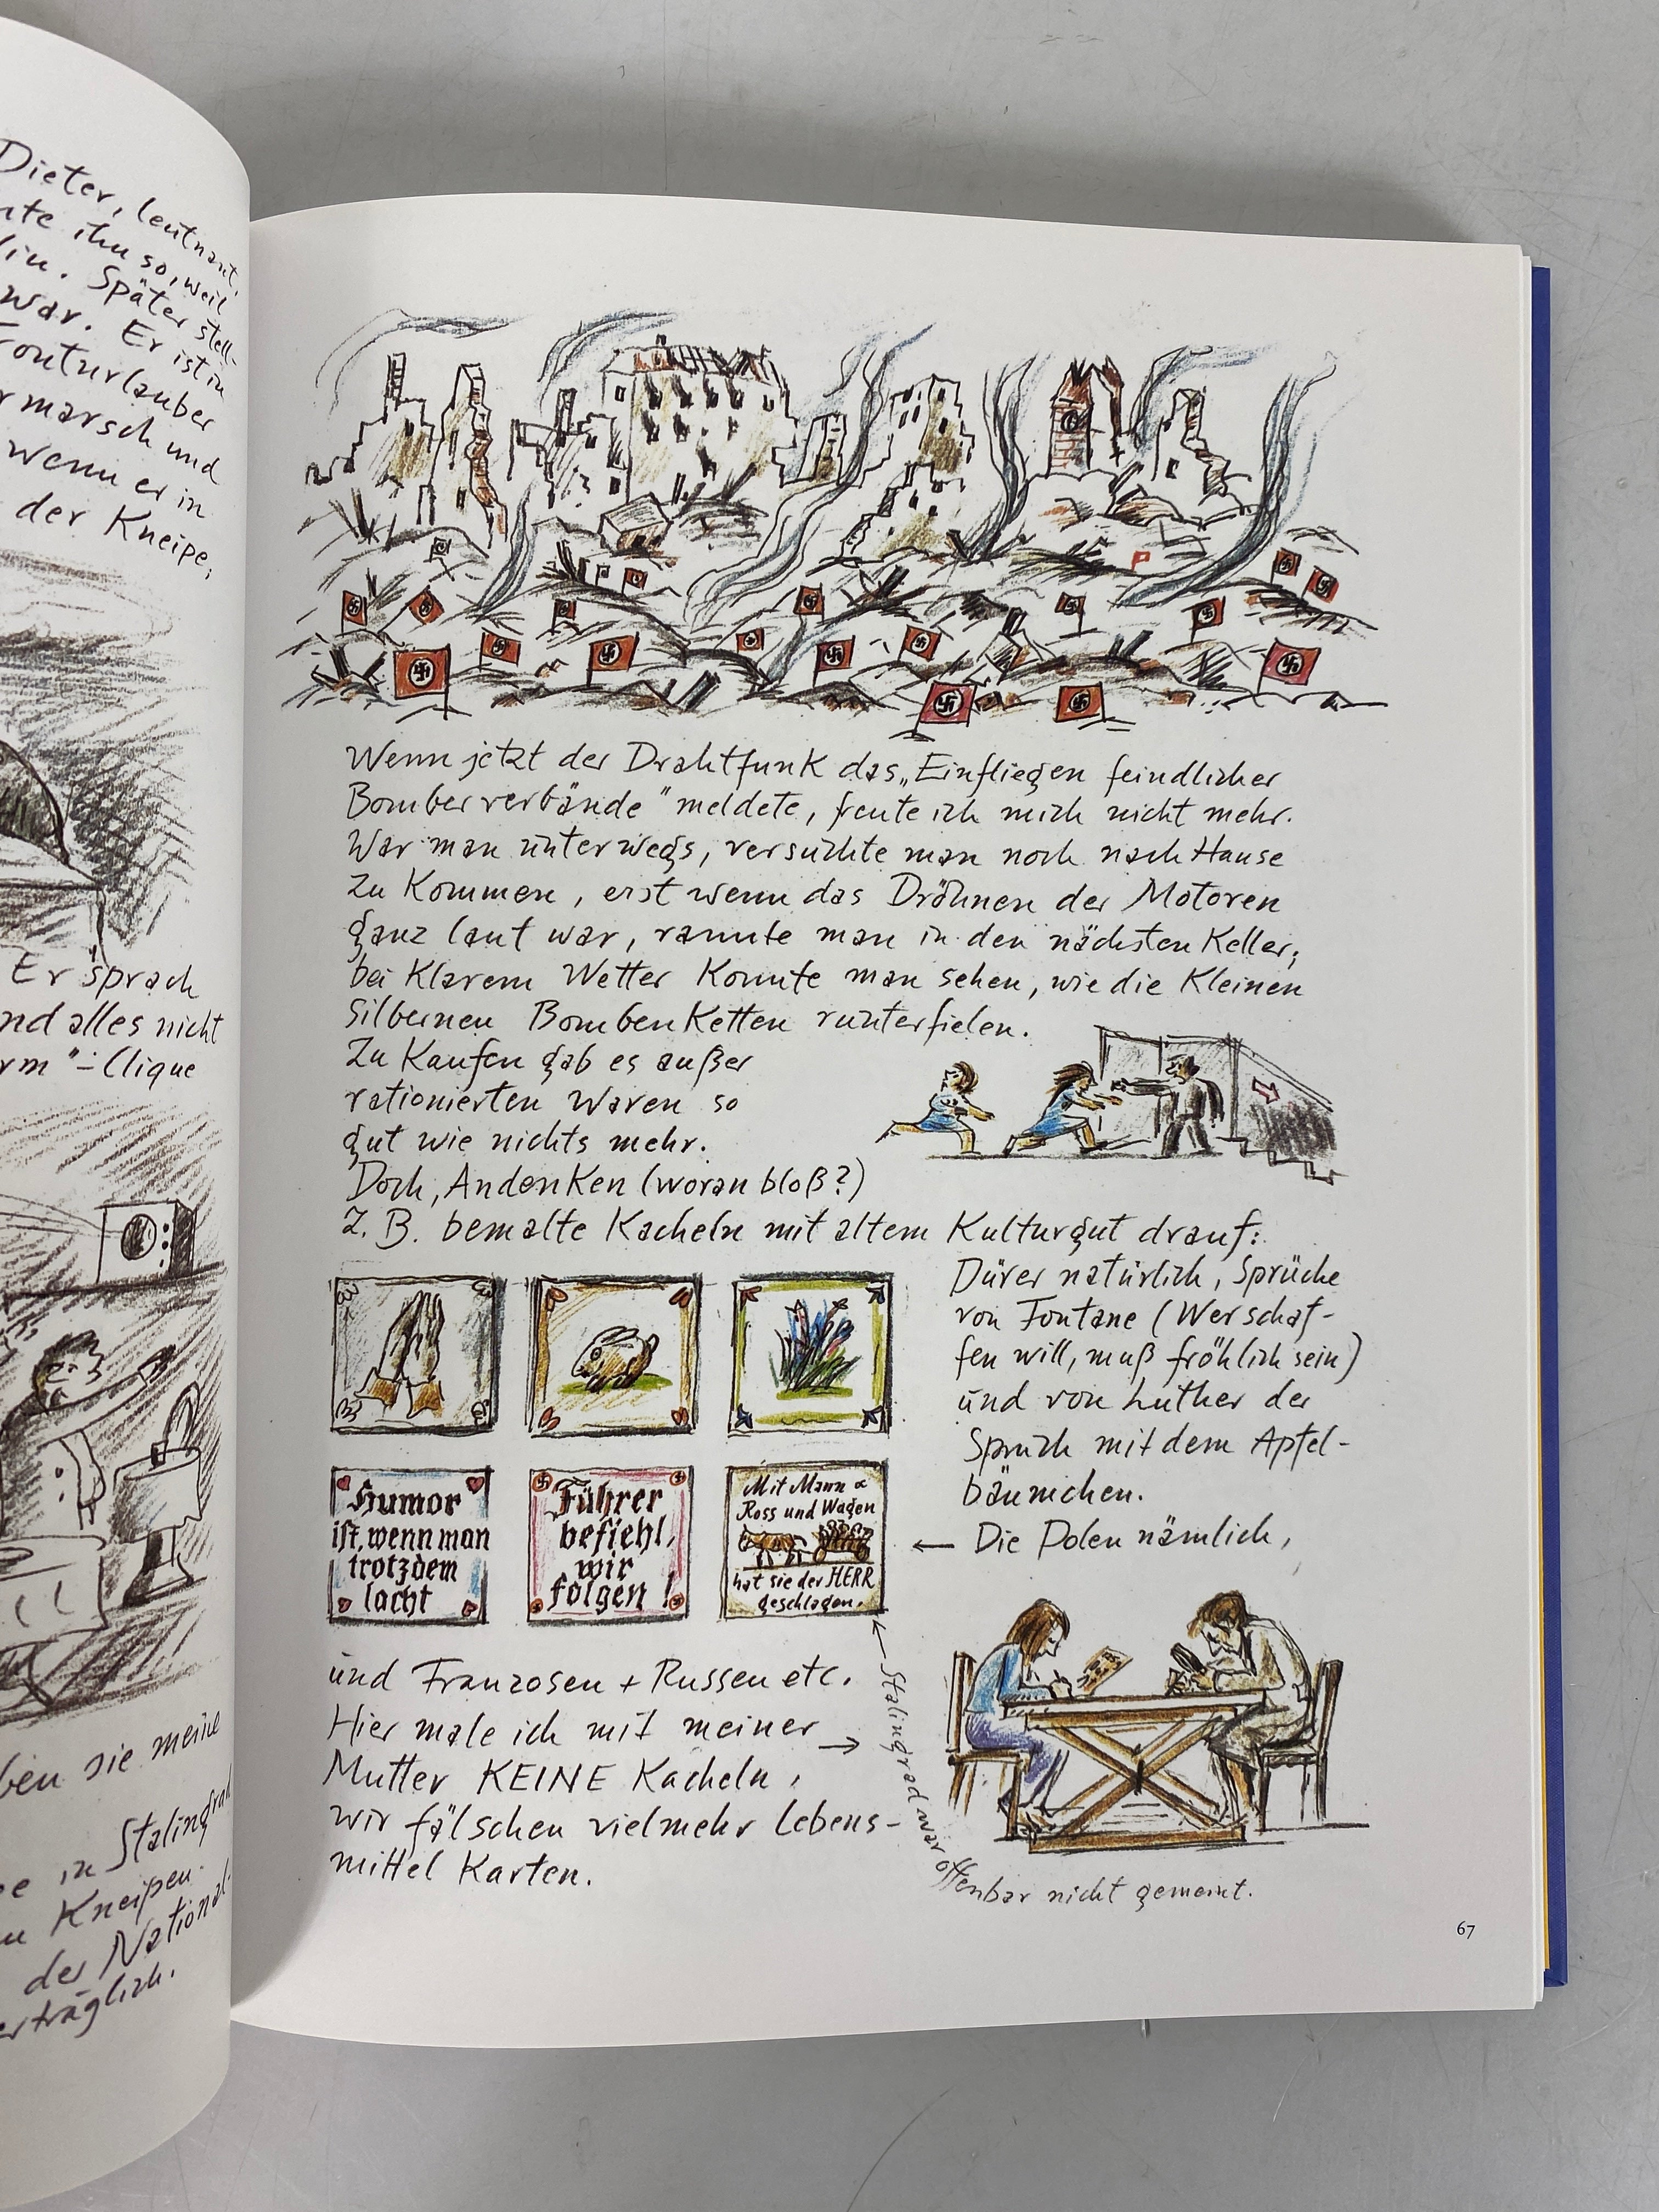 Dieter, leutnant,
ihn so, weil
Später stell-
war. Er ist in
Fronturlauber
marsch und
wenn er in
der Kneipe,
Er sprach
alles nicht
"-Clique
sie meine
in Stalingrad
Kneipen.
der National-
Wenn jetzt der Drahtfunk das „Einfliegen feindlicher
Bomberverbände" meldete, freute ich mich nicht mehr.
War man unterwegs, versuchte man noch nach Hause
zu Kommen, erst wenn das Dröhnen der Motoren
ganz laut war, rannte man in den nächsten Keller;
bei Klarem Wetter Konnte man sehen, wie die Kleinen
silbernen BombenKetten runterfielen.
Zu Kaufen gab es außer
rationierten Waren so
gut wie nichts mehr.
Doch, AndenKen (woran bloß?)
Z. B. bemalte Kacheln mit altem Kulturgut drauf:
Dürer natürlich, Sprüche
von Fontane (Wer schaf-
fen will, muß fröhlich sein)
und von Luther der
Spruch mit dem Apfel-
bäumchen.
Humor
ist, wenn man
trotzdem
lacht
Führer
befiehl,
wir
folgen!
Mit Mann &
Ross und Wagen
hat sie der HERR
geschlagen.
← Die Polen nämlich,
und Franzosen + Russen etc.
Hier male ich mit meiner →
Mutter KEINE Kacheln,
wir fälschen vielmehr Lebens-
mittel Karten.
← Stalingrad war offenbar nicht gemeint.
67